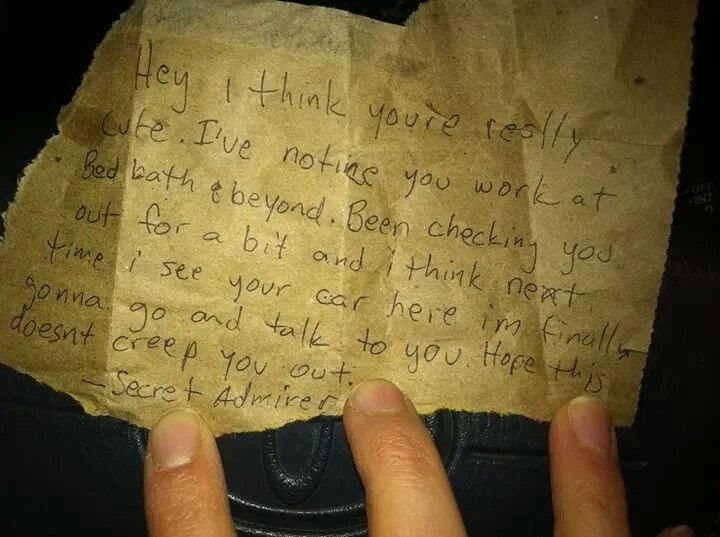 Hey i think you're really
cute. I've notice you work at
Bed bath & beyond. Been checking you
out for a bit and i think next
time i see your car here im finally
gonna go and talk to you. Hope this
doesnt creep you out.
- Secret Admirer